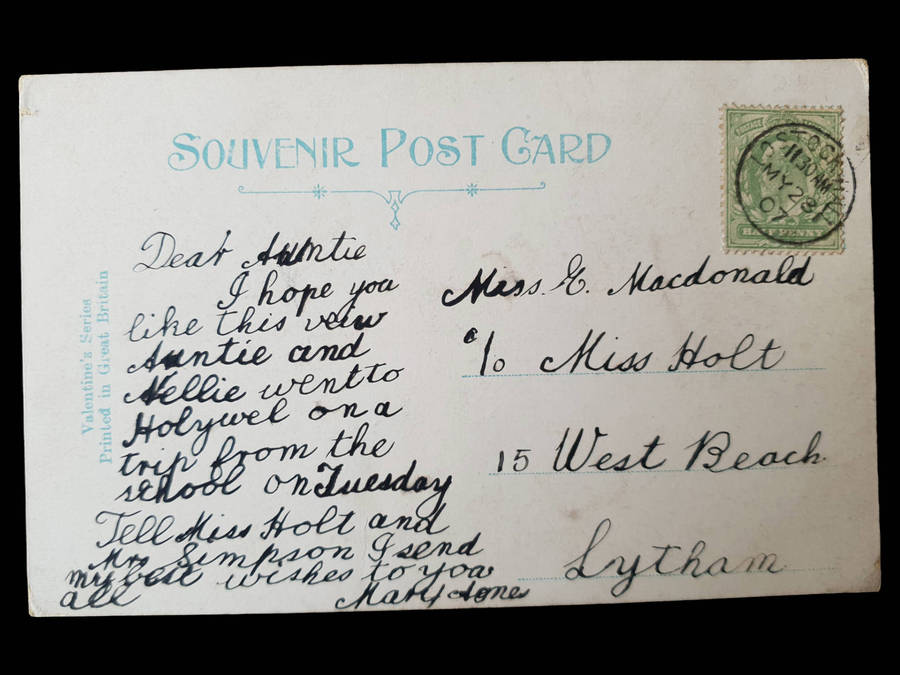 SOUVENIR POST CARD
Valentine's Series
Printed in Great Britain
Dear Auntie
I hope you
like this veiw
Auntie and
Nellie went to
Holywel on a
trip from the
school on Tuesday
Tell Miss Holt and
Mrs Simpson I send
my best wishes to you
all Mary Jones
LOSTOCK
11.30AM
MY 28
07
HALF PENNY
Miss. E. Macdonald
c/o Miss Holt
15 West Beach
Lytham